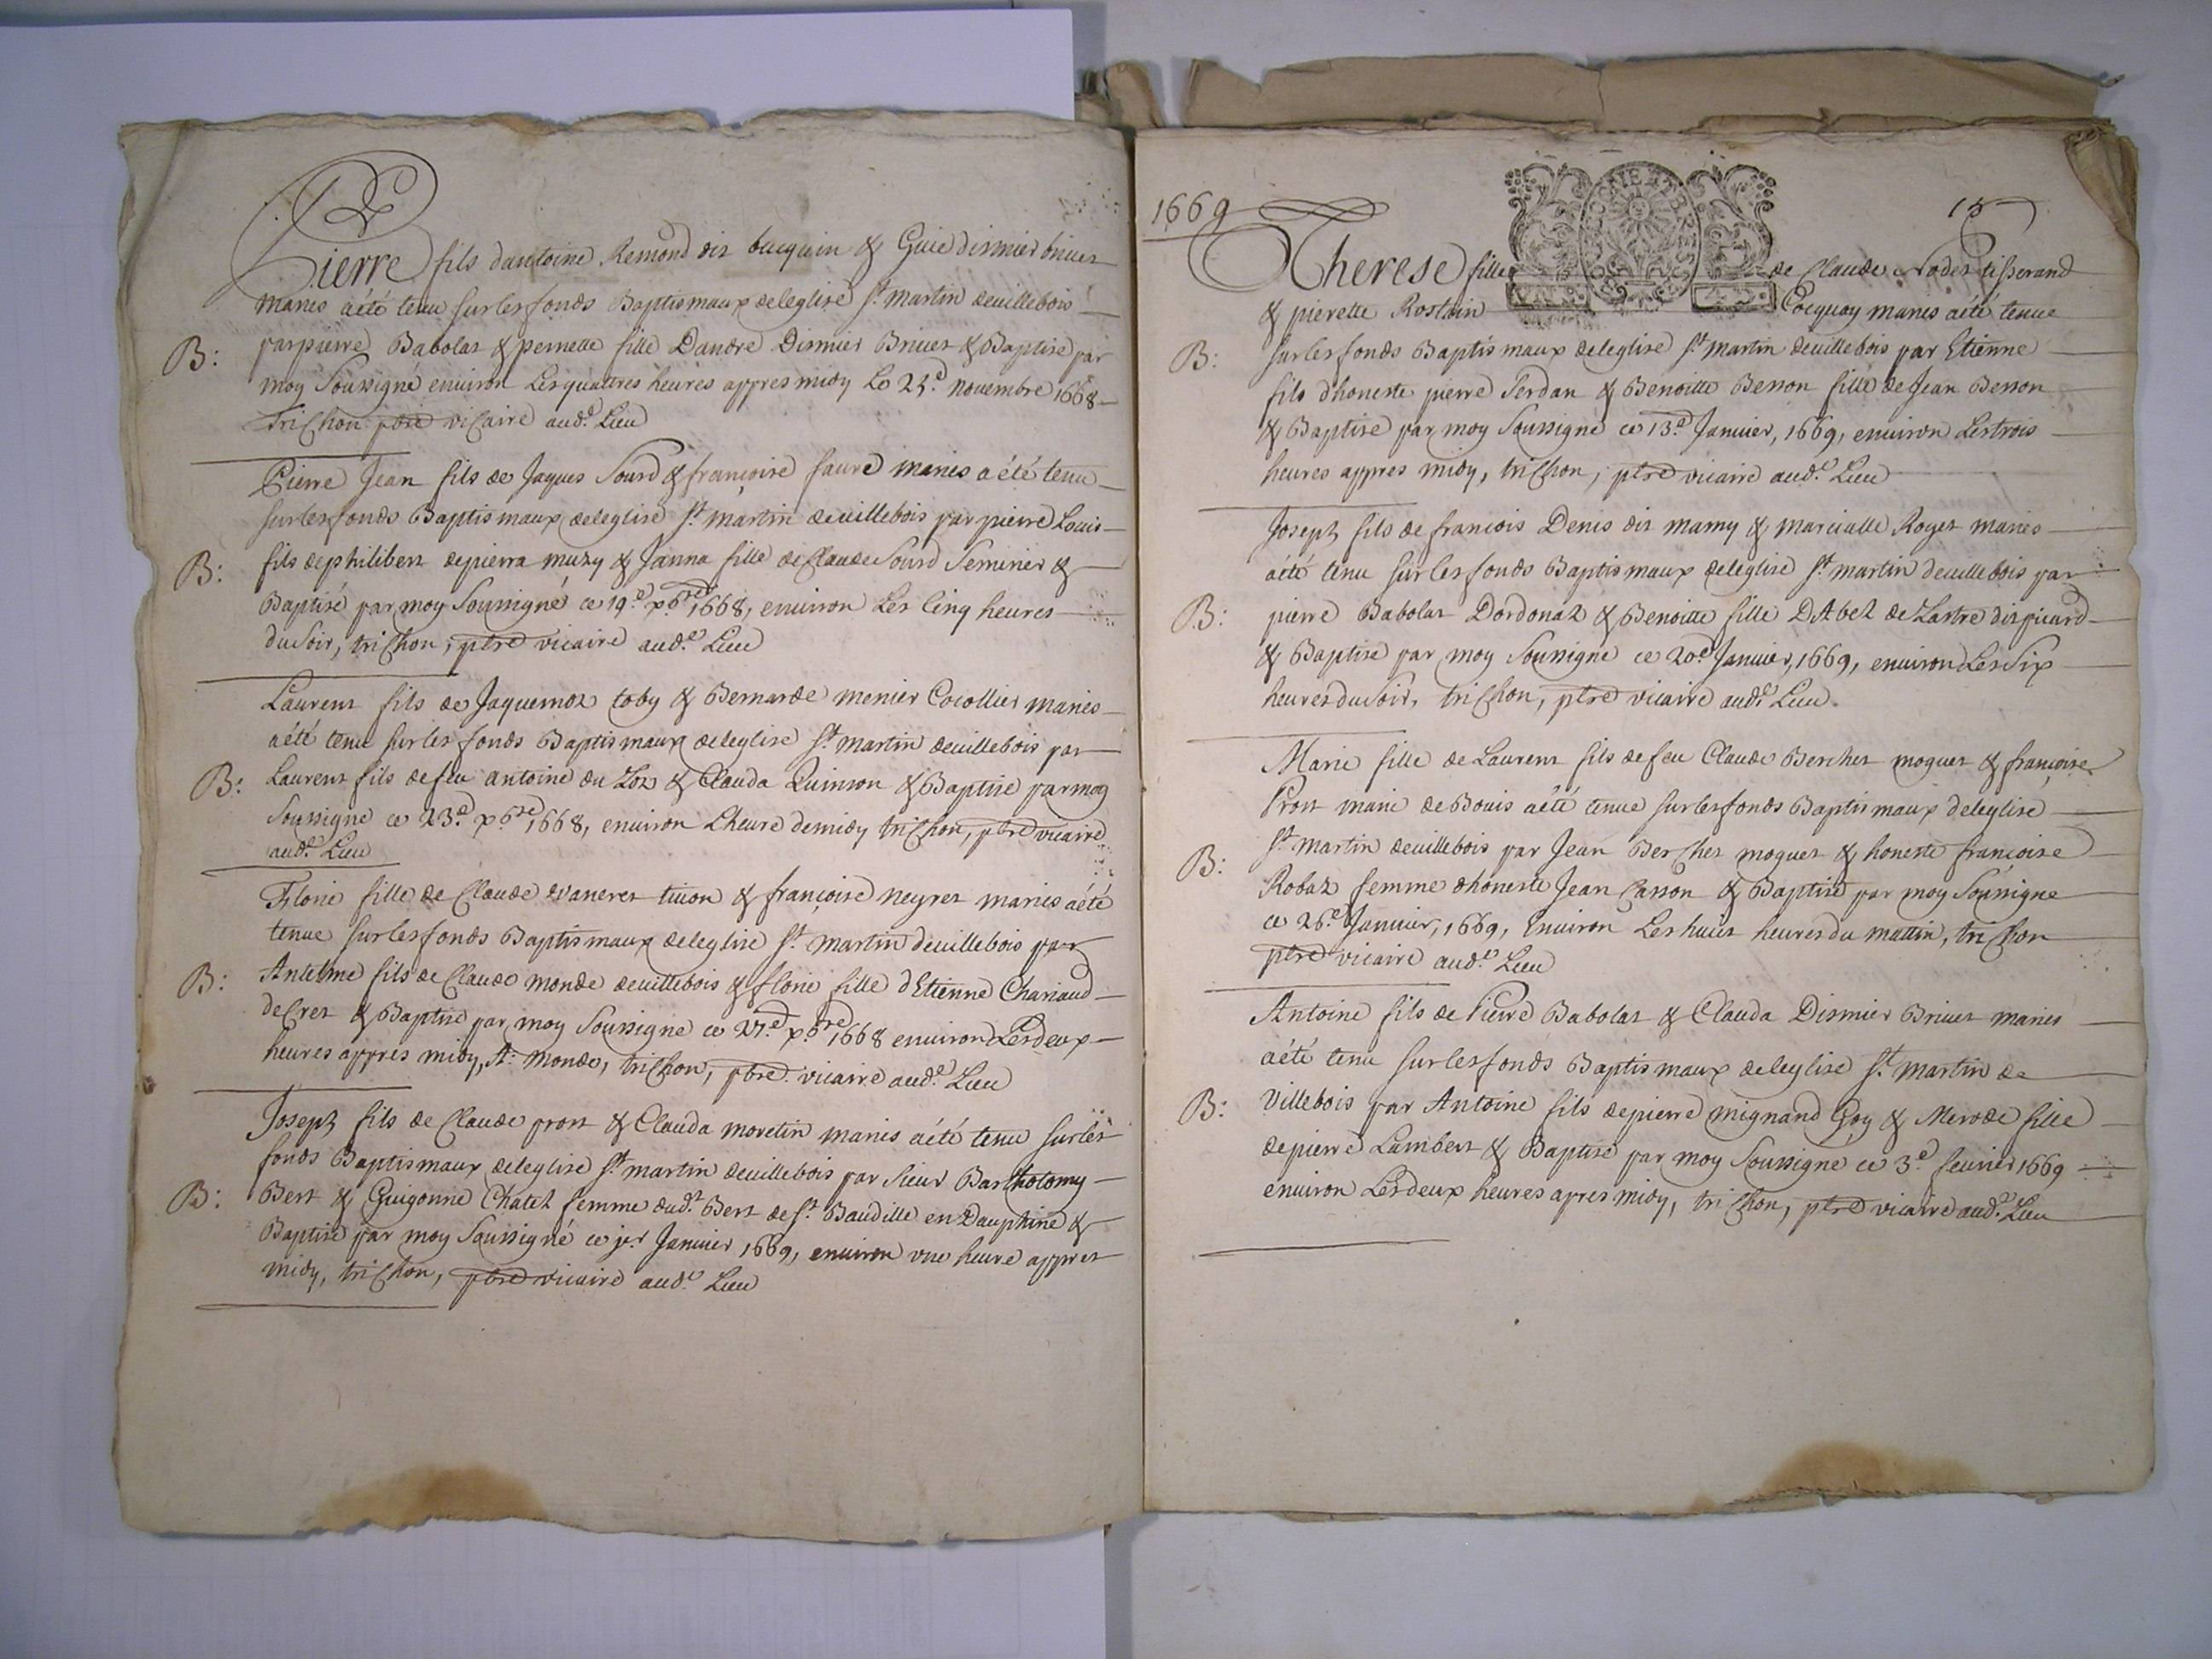 Pierre fils dantoine Remond dit bucquin & Guie dismier briuet
maries aété tenu sur les fonds Baptismaux deleglise St. martin deuillebois
B: par pierre Babolat & pernette fille Dandre Dismier Briuet & Baptise par
moy Soussigné enuiron Les quattres heures appres midy Le 25e. nouembre 1668
trichon ptre vicaire aude. Lieu
Pierre Jean fils de Jaques Sourd & françoise faure maries a été tenu
sur les fonds Baptismaux deleglise St. martin deuillebois par pierre Louis
B: fils dephilibert depierra muzy & Janna fille de Claude Sourd Seminier &
Baptisé par moy Soussigné ce 19e. xbre 1668, enuiron Les Cinq heures
du Soir, trichon, ptre vicaire aude. Lieu
Laurent fils de Jaquemoz toby & Bernarde menier Cocollier maries
aété tenu sur les fonds Baptismaux deleglise St. martin deuillebois par
B: Laurent fils de feu antoine du Loz & Clauda Quinson & Baptise par moy
Soussigne ce 23e. xbre 1668, enuiron Lheure demidy trichon, ptre vicaire
aude. Lieu
Florie fille de Claude vaneret tinon & françoise neyret maries aété
tenue sur les fonds Baptismaux deleglise St. martin deuillebois par
B: Antelme fils de Claude monde deuillebois & florie fille d'Etienne Chariaud
de Cret & Baptise par moy Soussigne ce 27e. xbre 1668 enuiron Les deux
heures appres midy, A: monde, trichon, ptre. vicaire aude. Lieu
Joseph fils de Claude prost & Clauda moretin maries aété tenu sur les
fonds Baptismaux deleglise St. martin deuillebois par Sieur Bartholomy
B: Bert & Guigonne Chatel femme dudt. Bert de St. Baudille en Dauphiné &
Baptise par moy Soussigné ce jer Januier 1669, enuiron vne heure appres
midy, trichon, ptre vicaire aude. Lieu
1669
Therese fille de Claude Nodet tisserand
& pierette Rostain Cocquay maries aété tenue
B: sur les fonds Baptismaux deleglise St. martin deuillebois par Etienne
fils dhoneste pierre Serdan & Benoitte Besson fille de Jean Besson
& Baptise par moy Soussigne ce 13e Januier, 1669, enuiron Les trois
heures appres midy, trichon, ptre vicaire aude. Lieu
Joseph fils de francois Denis dit mamy & marcialle Roget maries
aété tenu sur les fonds Baptismaux deleglise St. martin deuillebois par
B: pierre Babolat Dordonaz & Benoitte fille D'Abel de Lastre dit picard
& Baptise par moy Soussigné ce 20e Januier, 1669, enuiron Les Six
heures du Soir, trichon, ptre vicaire aude. Lieu.
Marie fille de Laurent fils de feu Claude Berchet moguet & françoise
Prost marie de Bouis aété tenue sur les fonds Baptismaux deleglise
St. martin deuillebois par Jean Berchet moguet & honeste françoise
B: Robaz femme dhoneste Jean Casson & Baptise par moy Soussigne
ce 26e. Januier, 1669, Enuiron Les huict heures du mattin, trichon
ptre vicaire aude. Lieu
Antoine fils de Pierre Babolat & Clauda Dismier Briuet maries
aété tenu sur les fonds Baptismaux deleglise St. martin de
B: Villebois par Antoine fils de pierre mignand Goy & Merode fille
de pierre Lambert & Baptisé par moy Soussigné ce 3e. feurier 1669
enuiron Les deux heures apres midy, trichon, ptre vicaire aude. Lieu